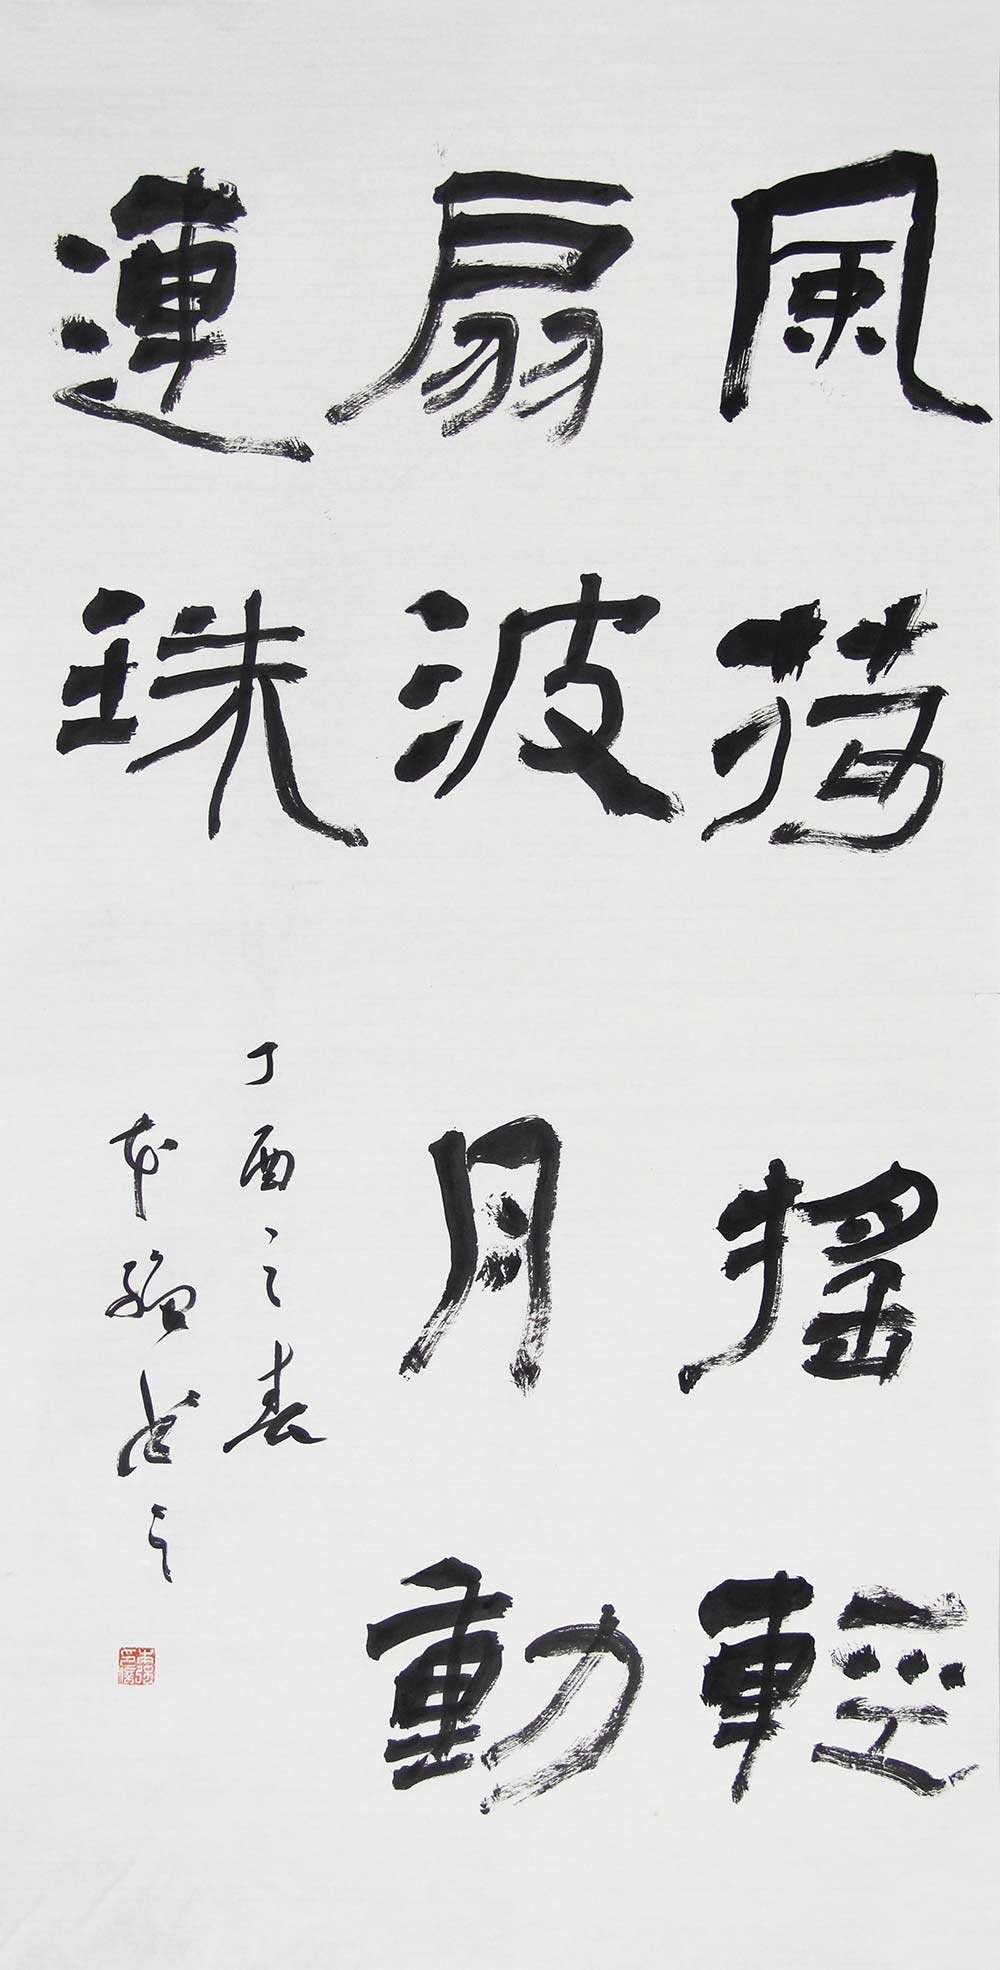 風荷搖輕
扇波月動
連珠
丁酉之春
本强